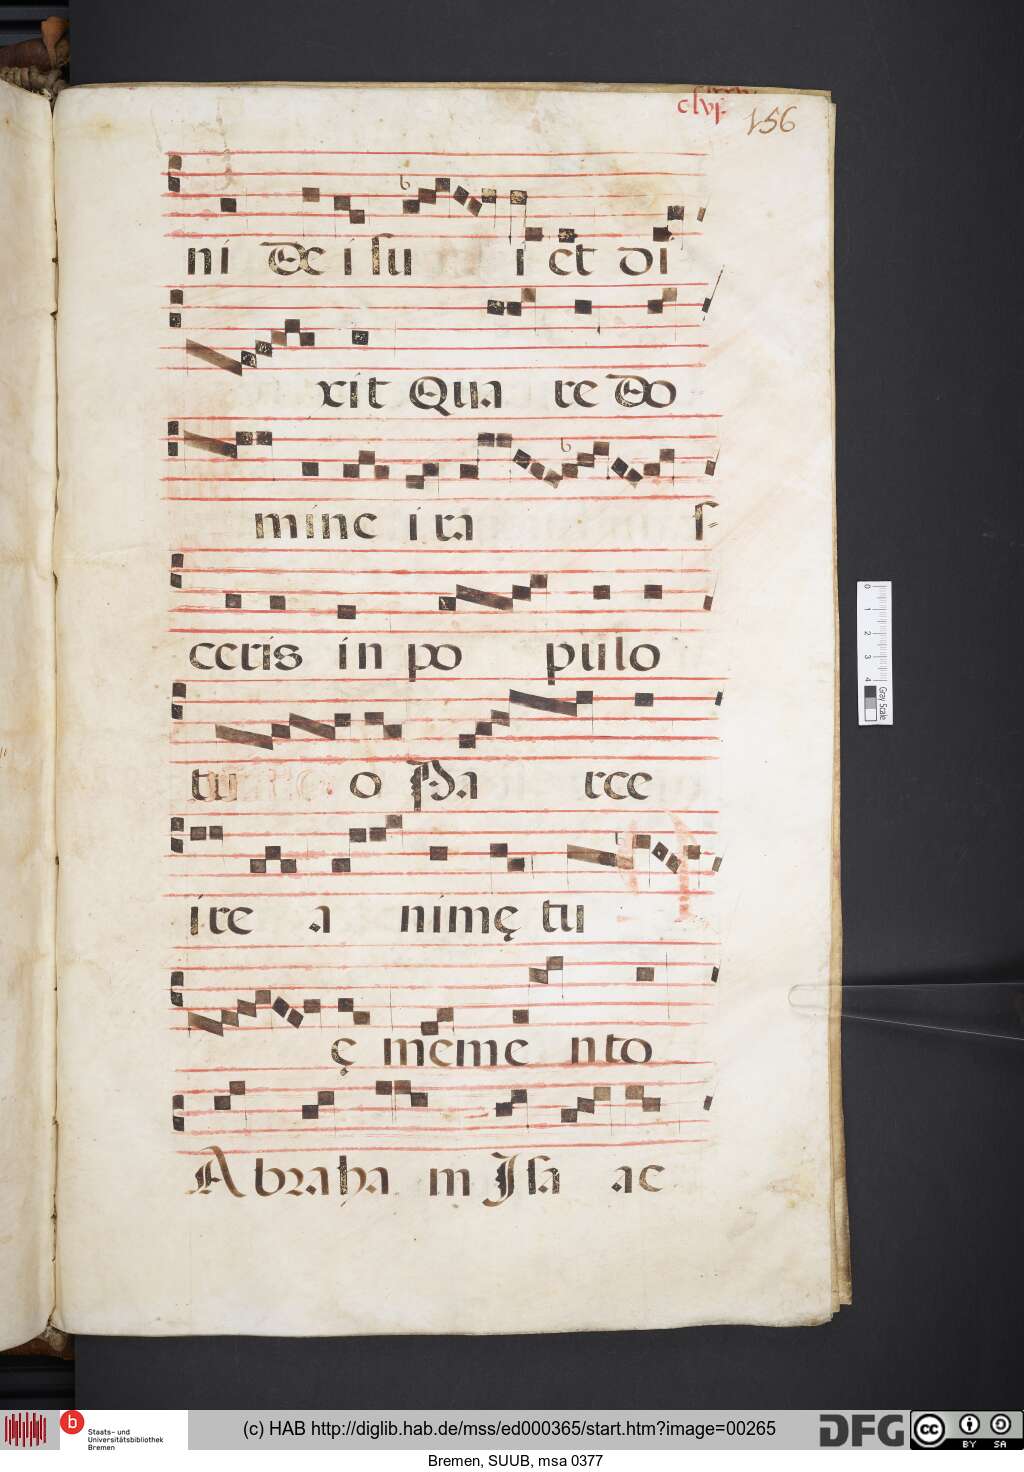 clvj. 156
ni Dei su i et di
xit Qua re Do
mine ira s=
ceris in po pulo
tu o Pa rce
ire a nimę tu
ę meme nto
Abraha m Isa ac
0 1 2 3 4
Gray Scale
b Staats- und
Universitätsbibliothek
Bremen
(c) HAB http://diglib.hab.de/mss/ed000365/start.htm?image=00265
DFG
cc BY SA
Bremen, SUUB, msa 0377